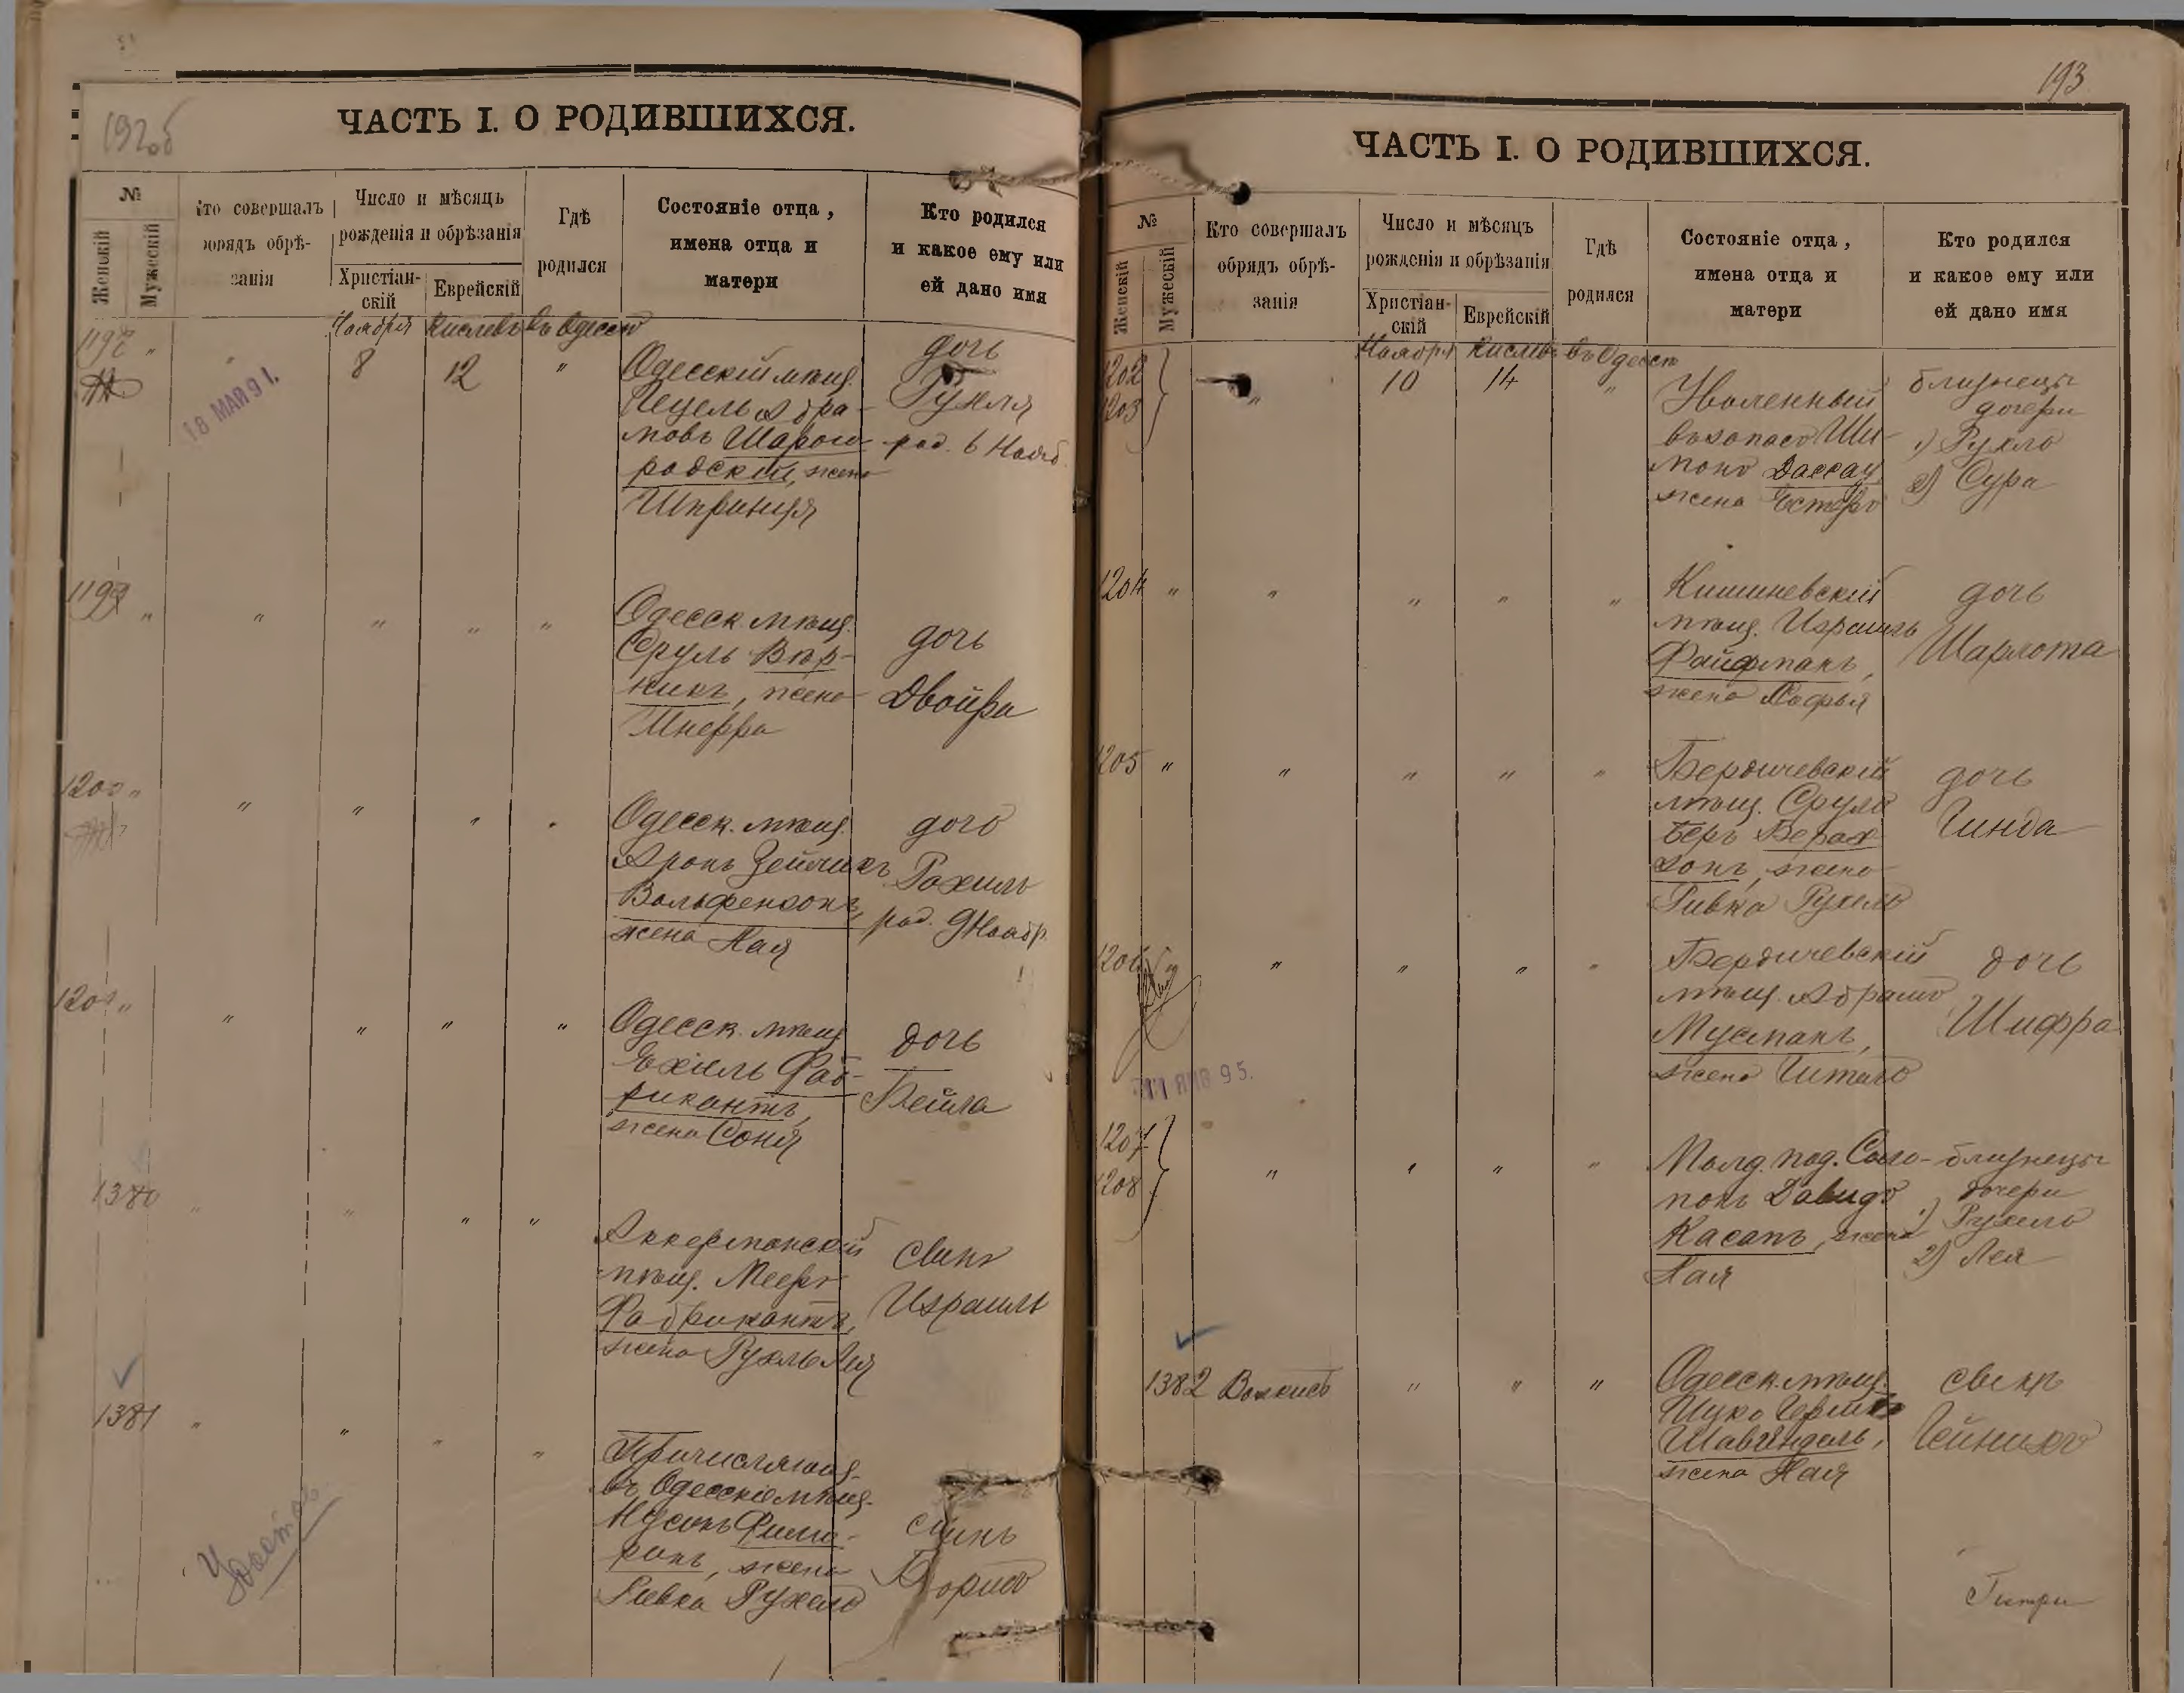 192 об
ЧАСТЬ I. О РОДИВШИХСЯ.
№
Женскій
Мужескій
Кто совершалъ
обрядъ обрѣ-
занія
Число и мѣсяцъ
рожденія и обрѣзанія
Христіан-
скій
Еврейскій
Гдѣ
родился
Состояніе отца,
имена отца и
матери
Кто родился
и какое ему или
ей дано имя
Ноября Кислевъ въ Одессѣ
1198 " " 8 12 "
18 МАЙ 91.
Одесскій мѣщ.
Абра-
мовъ Шарого-
родскій, жена
Шпринця
дочь
Рухля
род. 6 Нояб.
1199 " " " " "
Одесск мѣщ.
Сруль Вѣр-
никъ, жена
Шнефра
дочь
Двойра
1200 " " " " "
Одесск. мѣщ.
Аронъ Зейликъ
Вольфензонъ,
жена Хая
дочь
Рахиль
род. 9 Ноябр.
1201 " " " " "
Одесск. мѣщ
Ехіель Фаб-
рикантъ,
жена Соня
дочь
Бейла
1380 " " " "
Аккерманскій
мѣщ. Мееръ
Фабрикантъ,
жена Рухль Лея
сынъ
Израиль
1381 " " " "
Причисляющ.
въ Одесскіе мѣщ.
жена
Ривка Рухель
сынъ
Борисъ
193
ЧАСТЬ I. О РОДИВШИХСЯ.
№
Женскій
Мужескій
Кто совершалъ
обрядъ обрѣ-
занія
Число и мѣсяцъ
рожденія и обрѣзанія
Христіан-
скій
Еврейскій
Гдѣ
родился
Состояніе отца,
имена отца и
матери
Кто родился
и какое ему или
ей дано имя
Ноября Кислевъ въ Одессѣ
1202
1203
" 10 14 "
Уволенный
въ запасъ Ши-
монъ Дассау,
жена Естеръ
близнецы
дочери
1) Рухль
2) Сура
1204 " " " " "
Кишиневскій
мѣщ. Израиль
Файфманъ,
жена Софья
дочь
Шарлота
1205 " " " " "
Бердичевскій
мѣщ. Сруль
Беръ Берах-
зонъ, жена
Ривка Рухель
дочь
Гинда
1206 " " " "
ЯНВ 95.
Бердичевскій
мѣщ. Абрамъ
Мусманъ,
жена Гитель
дочь
Шифра
1207
1208
" " " "
Молд. под. Соло-
монъ Давидъ
Касапъ, жена
Хая
близнецы
дочери
1) Рухель
2) Лея
1382 " " "
Одесск. мѣщ.
жена Хая
сынъ
Гейнихъ